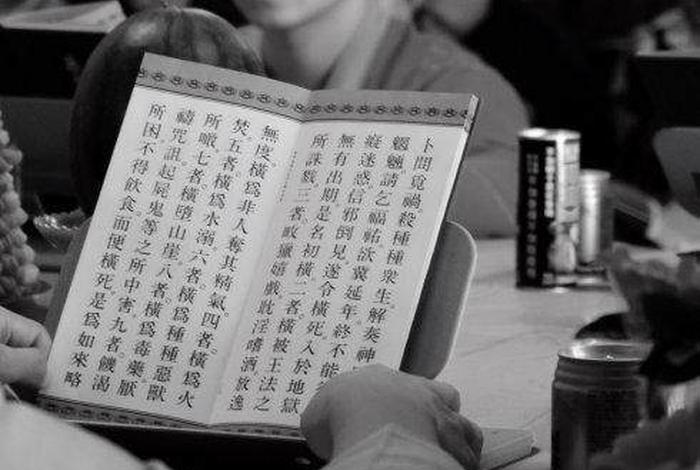 卜問覓禍。殺種種衆生。解奏神
魍魎。請乞福祐。欲冀延年。終不能
癡迷惑。信邪倒見。遂令橫死。入於地獄
無有出期。是名初橫。二者橫被王法之
所誅戮。三者畋獵嬉戲。耽淫嗜酒。放逸
無度。橫爲非人奪其精氣。四者橫爲火
焚。五者橫爲水溺。六者橫爲種種惡獸
所噉。七者橫墮山崖。八者橫爲毒藥。厭
禱咒詛。起屍鬼等之所中害。九者饑渴
所困。不得飲食。而便橫死。是爲如來略